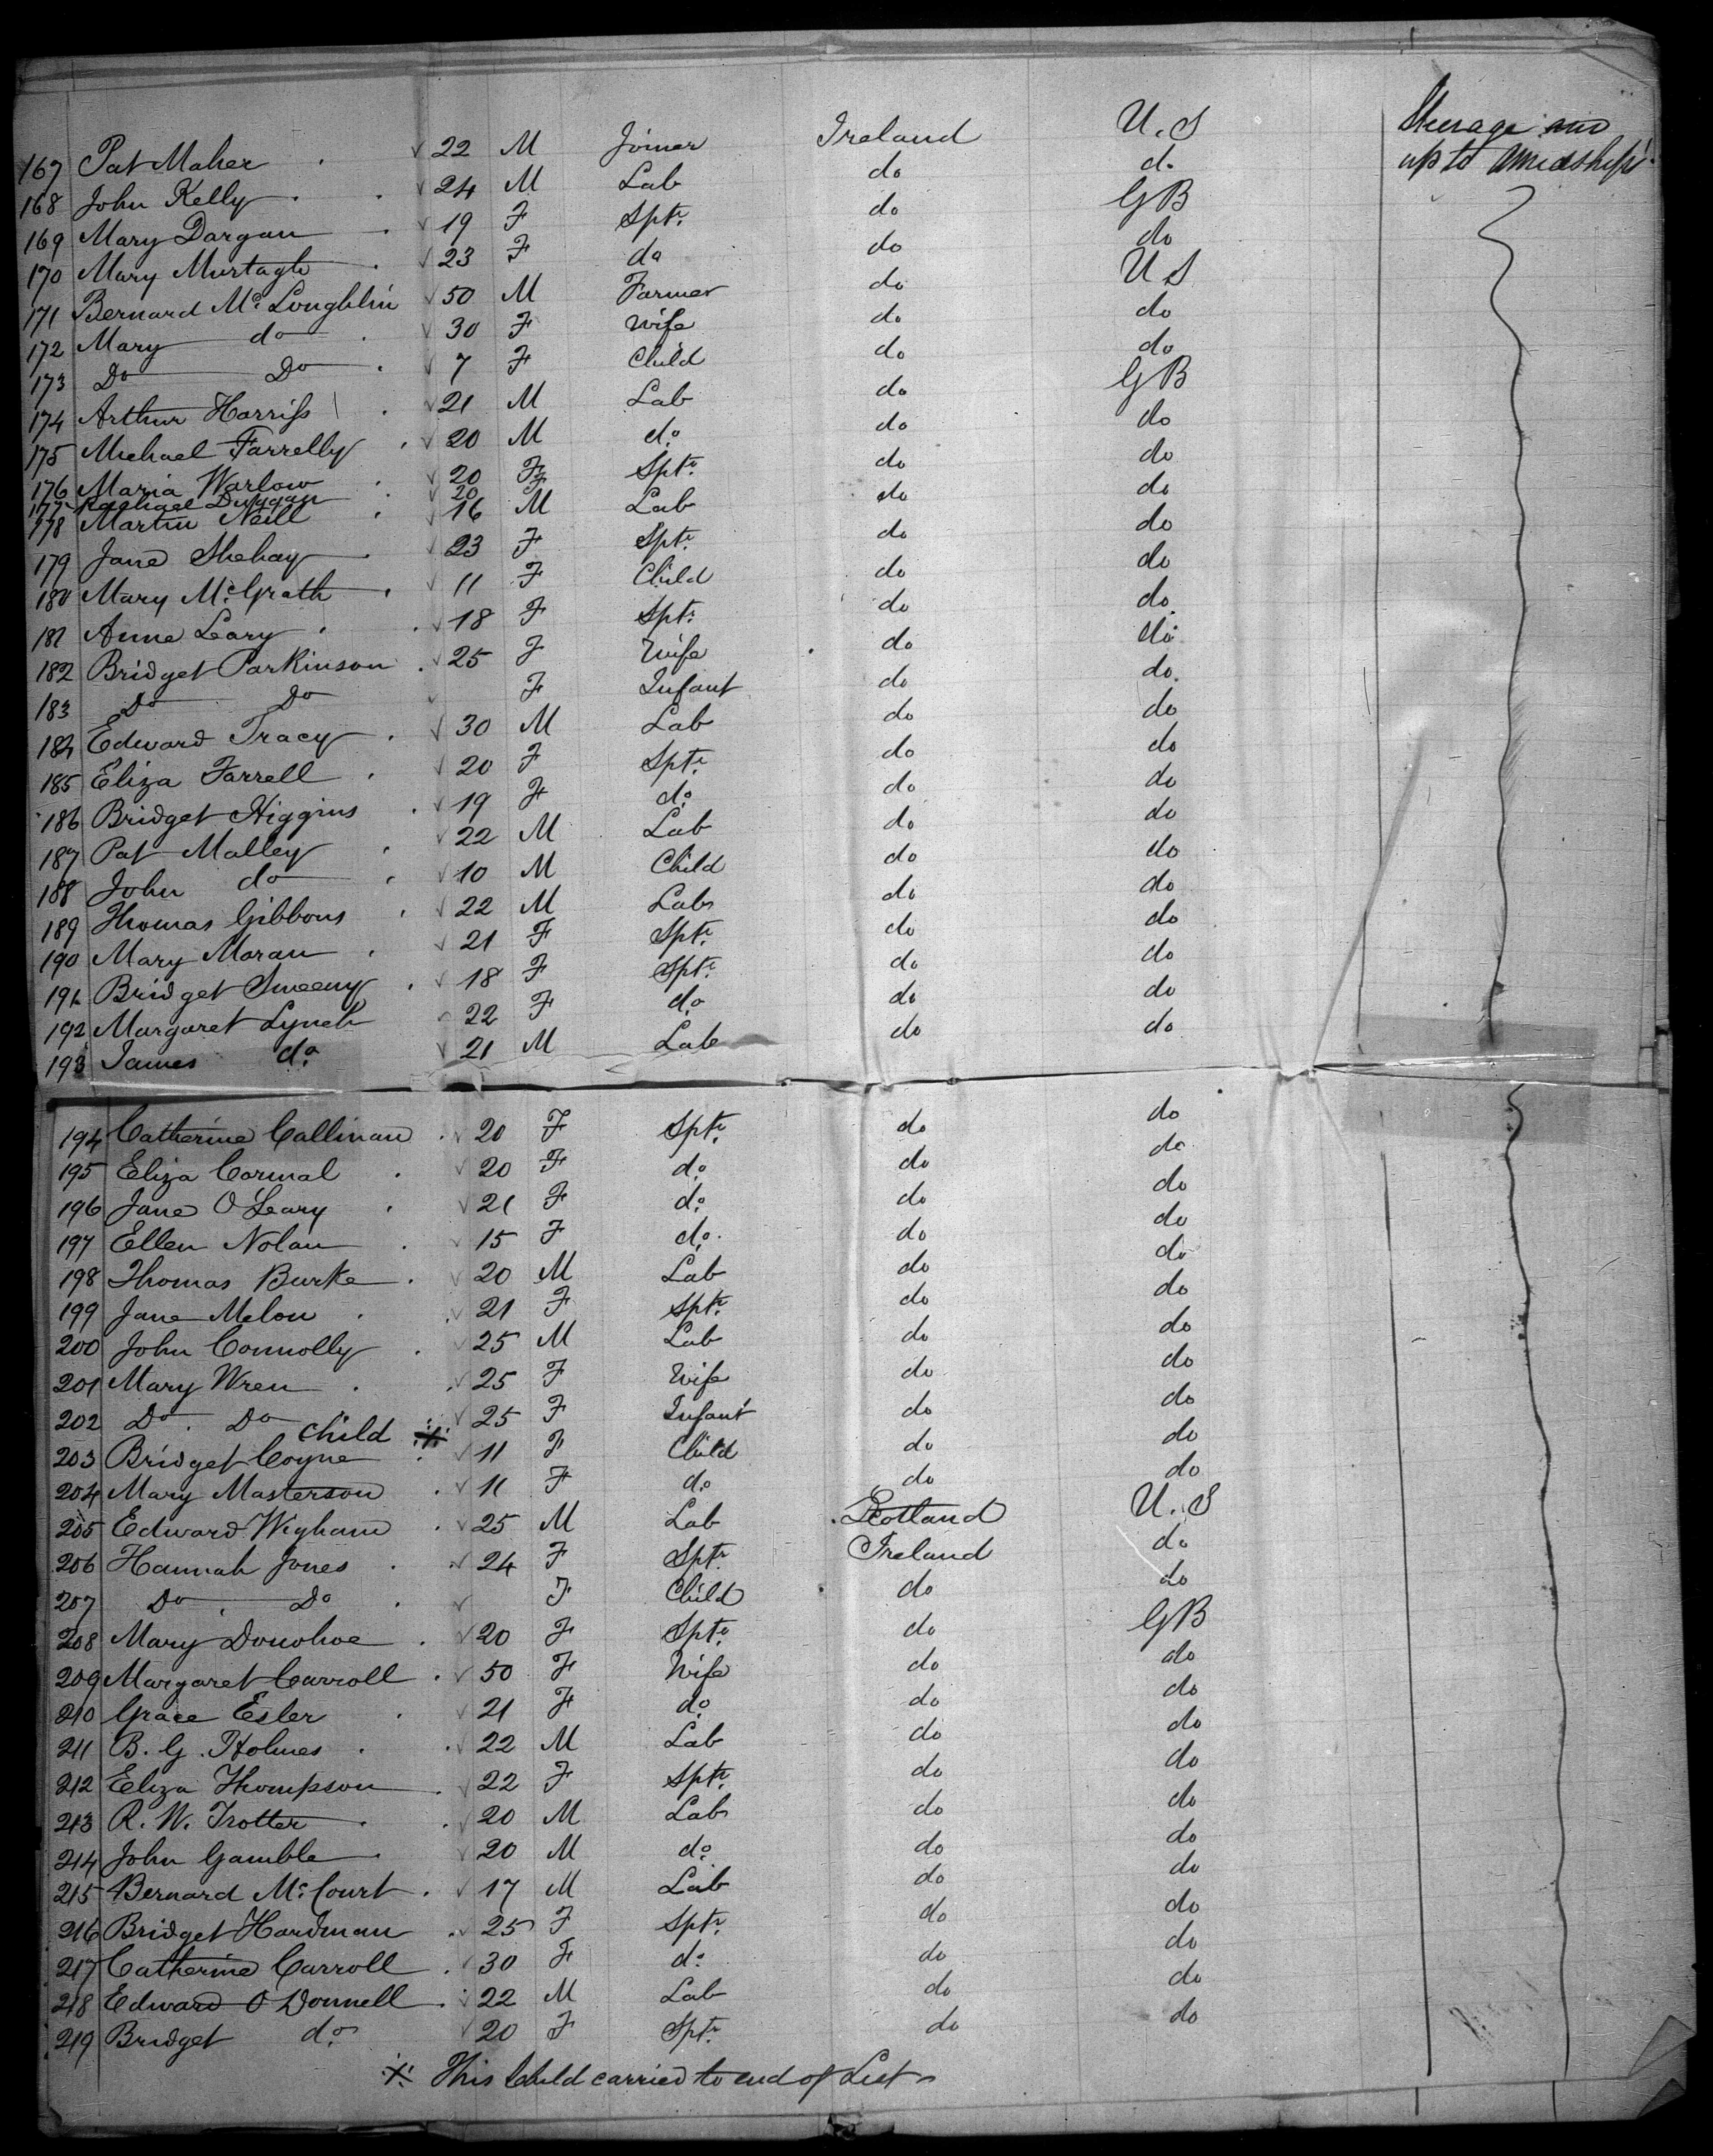 167 Pat Maher 22 M Joiner Ireland U.S Steerage and
168 John Kelly 24 M Lab do do up to amidships
169 Mary Dargan 19 F Sptr. do GB
170 Mary Murtagh 23 F do do do
171 Bernard Mc. Loughlin 50 M Farmer do U S
172 Mary do 30 F Wife do do
173 Do Do 7 F Child do do
174 Arthur Harriss 21 M Lab do GB
175 Michael Farrelly 20 M do. do do
176 Maria Warlow 20 F Sptr. do do
177 Rachael Duggan 20 F
178 Martin Neill 16 M Lab do do
179 Jane Shehay 23 F Sptr. do do
180 Mary Mc.Grath 11 F Child do do
181 Anne Leary 18 F Sptr. do do
182 Bridget Parkinson 25 F Wife do do
183 Do Do F Infant do do
184 Edward Tracy 30 M Lab do do
185 Eliza Farrell 20 F Sptr. do do
186 Bridget Higgins 19 F do. do do
187 Pat Malley 22 M Lab do do
188 John do 10 M Child do do
189 Thomas Gibbons 22 M Lab do do
190 Mary Moran 21 F Sptr. do do
191 Bridget Sweeny 18 F Sptr. do do
192 Margaret Lynch 22 F do do do
193 James do. 21 M Lab do do
194 Catherine Callinan 20 F Sptr. do do
195 Eliza Cormal 20 F do. do do
196 Jane O'Leary 21 F do. do do
197 Ellen Nolan 15 F do. do do
198 Thomas Burke 20 M Lab do do
199 Jane Melon 21 F Sptr. do do
200 John Connolly 25 M Lab do do
201 Mary Wren 25 F Wife do do
202 Do Do child * 25 F Infant do do
203 Bridget Coyne 11 F Child do do
204 Mary Masterson 11 F do. do do
205 Edward Wigham 25 M Lab Scotland U.S
206 Hannah Jones 24 F Sptr. Ireland do
207 Do Do F Child do do
208 Mary Donohoe 20 F Sptr. do GB
209 Margaret Carroll 50 F Wife do do
210 Grace Esler 21 F do. do do
211 B. G. Holmes 22 M Lab do do
212 Eliza Thompson 22 F Sptr. do do
213 R. W. Trotter 20 M Lab do do
214 John Gamble 20 M do. do do
215 Bernard Mc.Court 17 M Lab do do
216 Bridget Hardman 25 F Sptr. do do
217 Catherine Carroll 30 F do. do do
218 Edward O Donnell 22 M Lab do do
219 Bridget do. 20 F Sptr. do do
* This Child carried to end of List